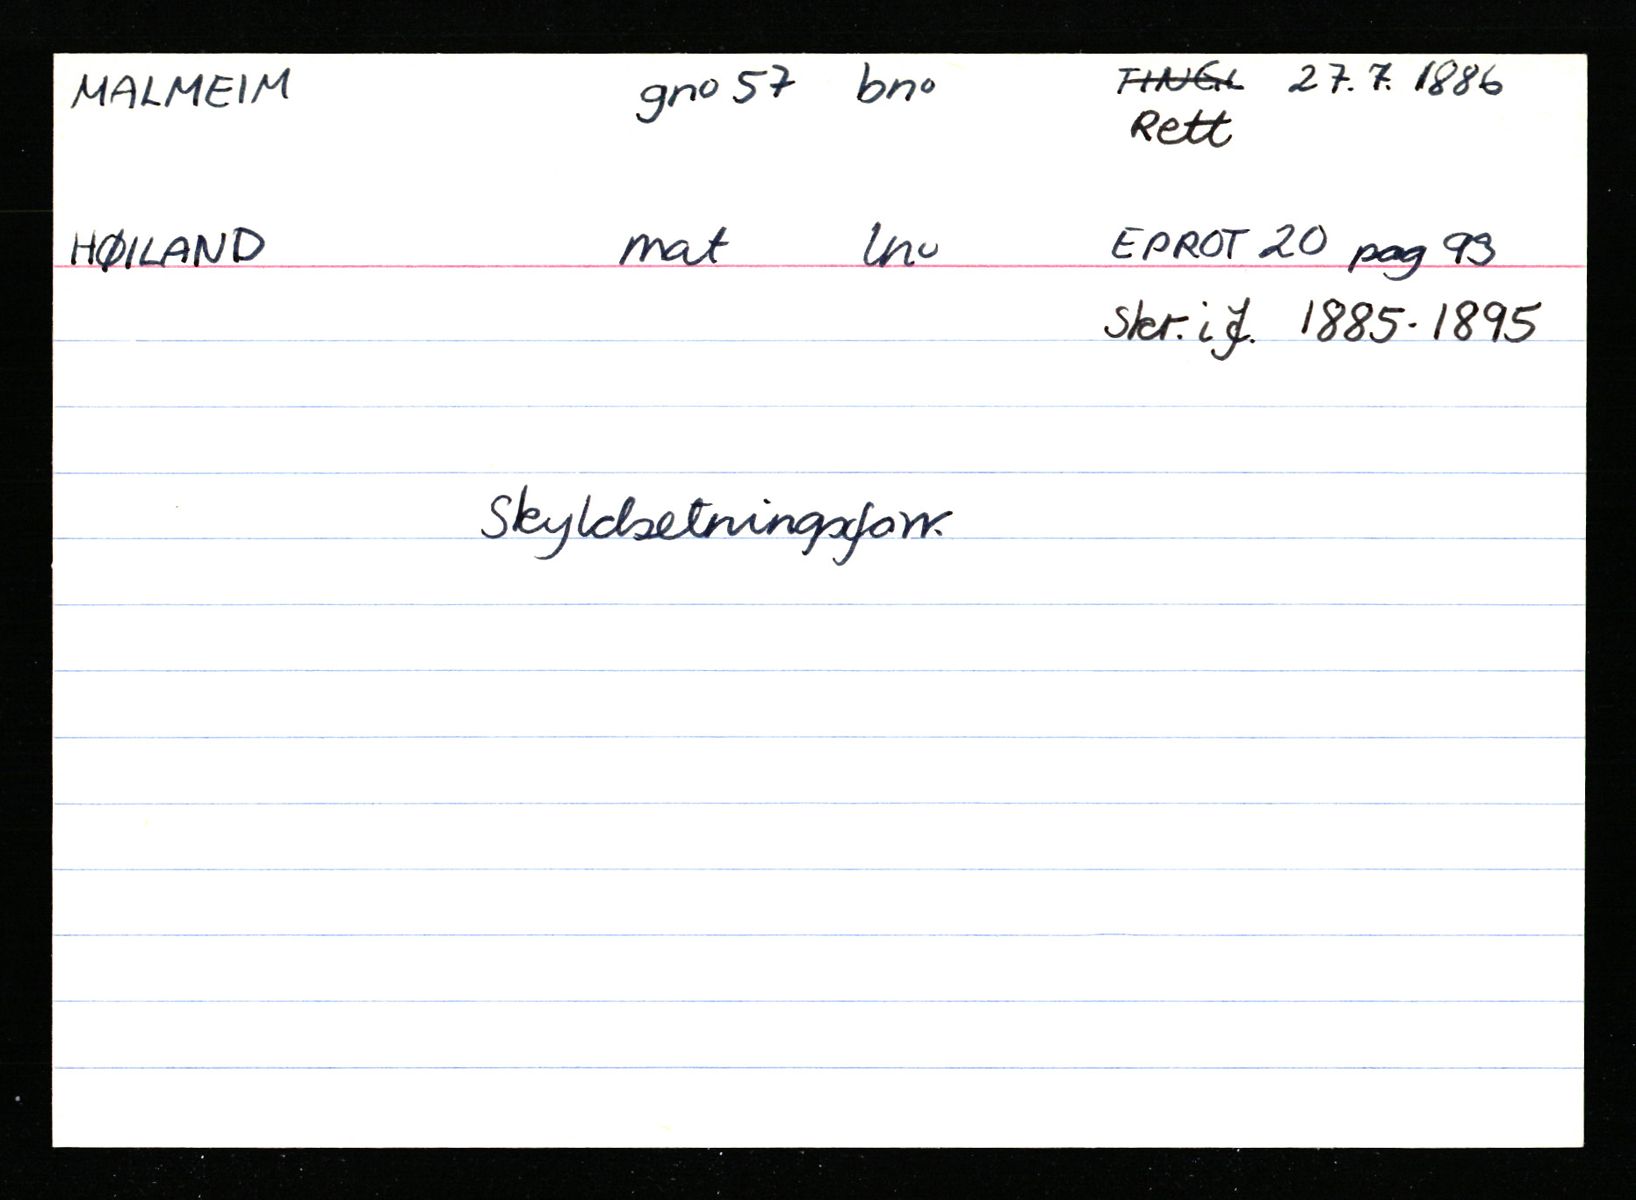 MALMEIM gno 57 bno ~~TINGL~~ 27.7.1886
Rett
HØILAND mat lno EPROT 20 pag 93
Skr. i J. 1885-1895
Skyldsetningsforr.